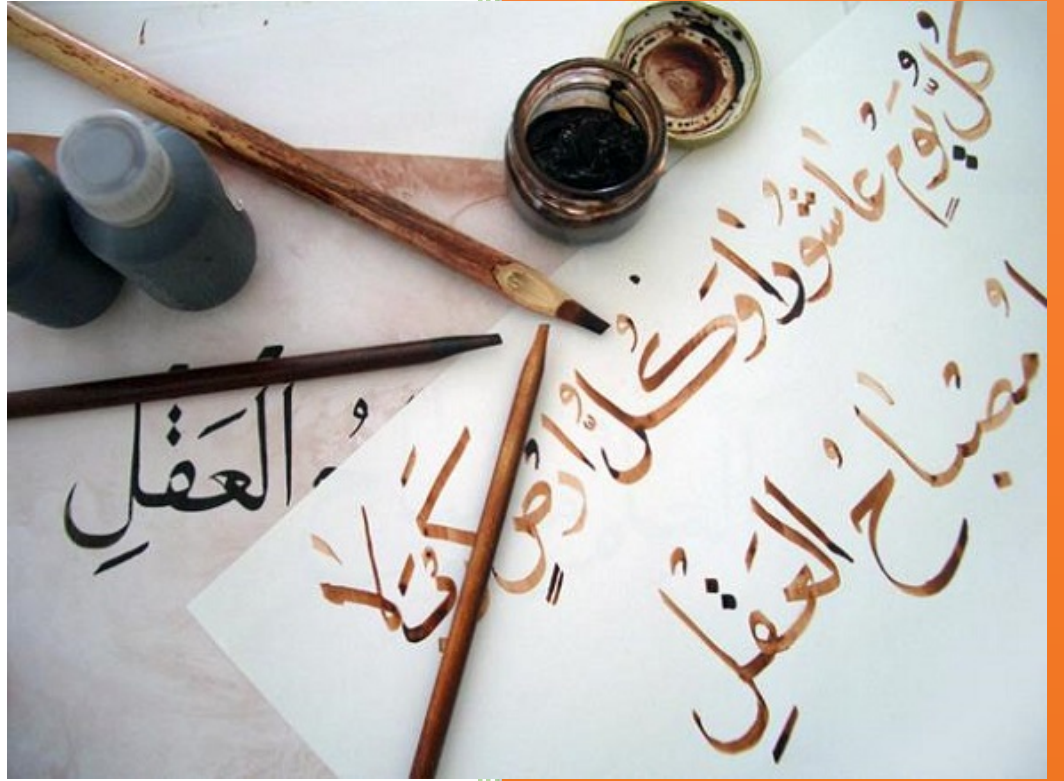 كُلُّ يَومٍ عَاشُورَا وَكُلُّ ارْضٍ كَربَلَا
مُصْبَاحُ الْعَقْلِ
الْعَقلِ